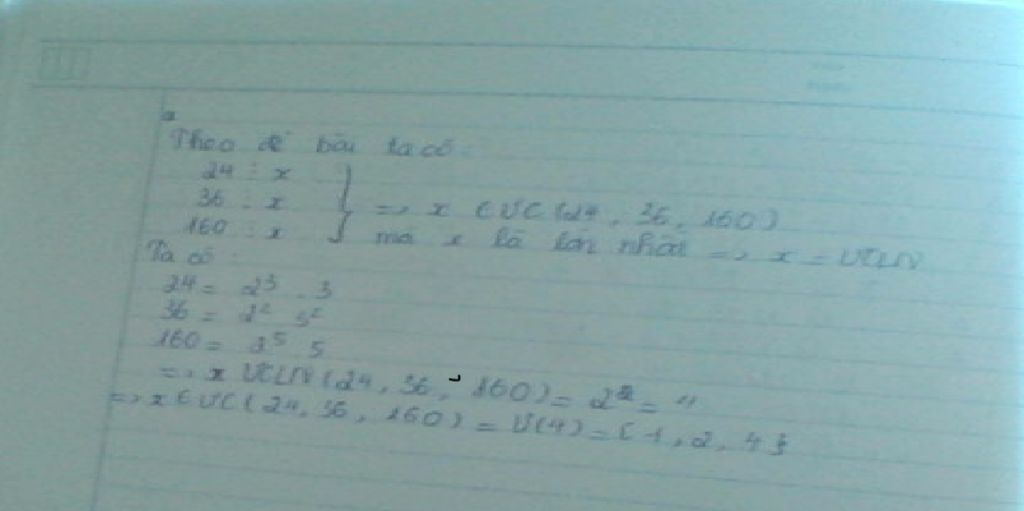 a
Theo đề bài ta có:
24 ⋮ x
36 ⋮ x } => x ∈ ƯC(24, 36, 160)
160 ⋮ x mà x là lớn nhất => x = ƯCLN
Ta có:
24 = 2³ . 3
36 = 2² 3²
160 = 2⁵ 5
=> x ƯCLN(24, 36, 160) = 2² = 4
=> x ∈ ƯC(24, 36, 160) = Ư(4) = {1, 2, 4}